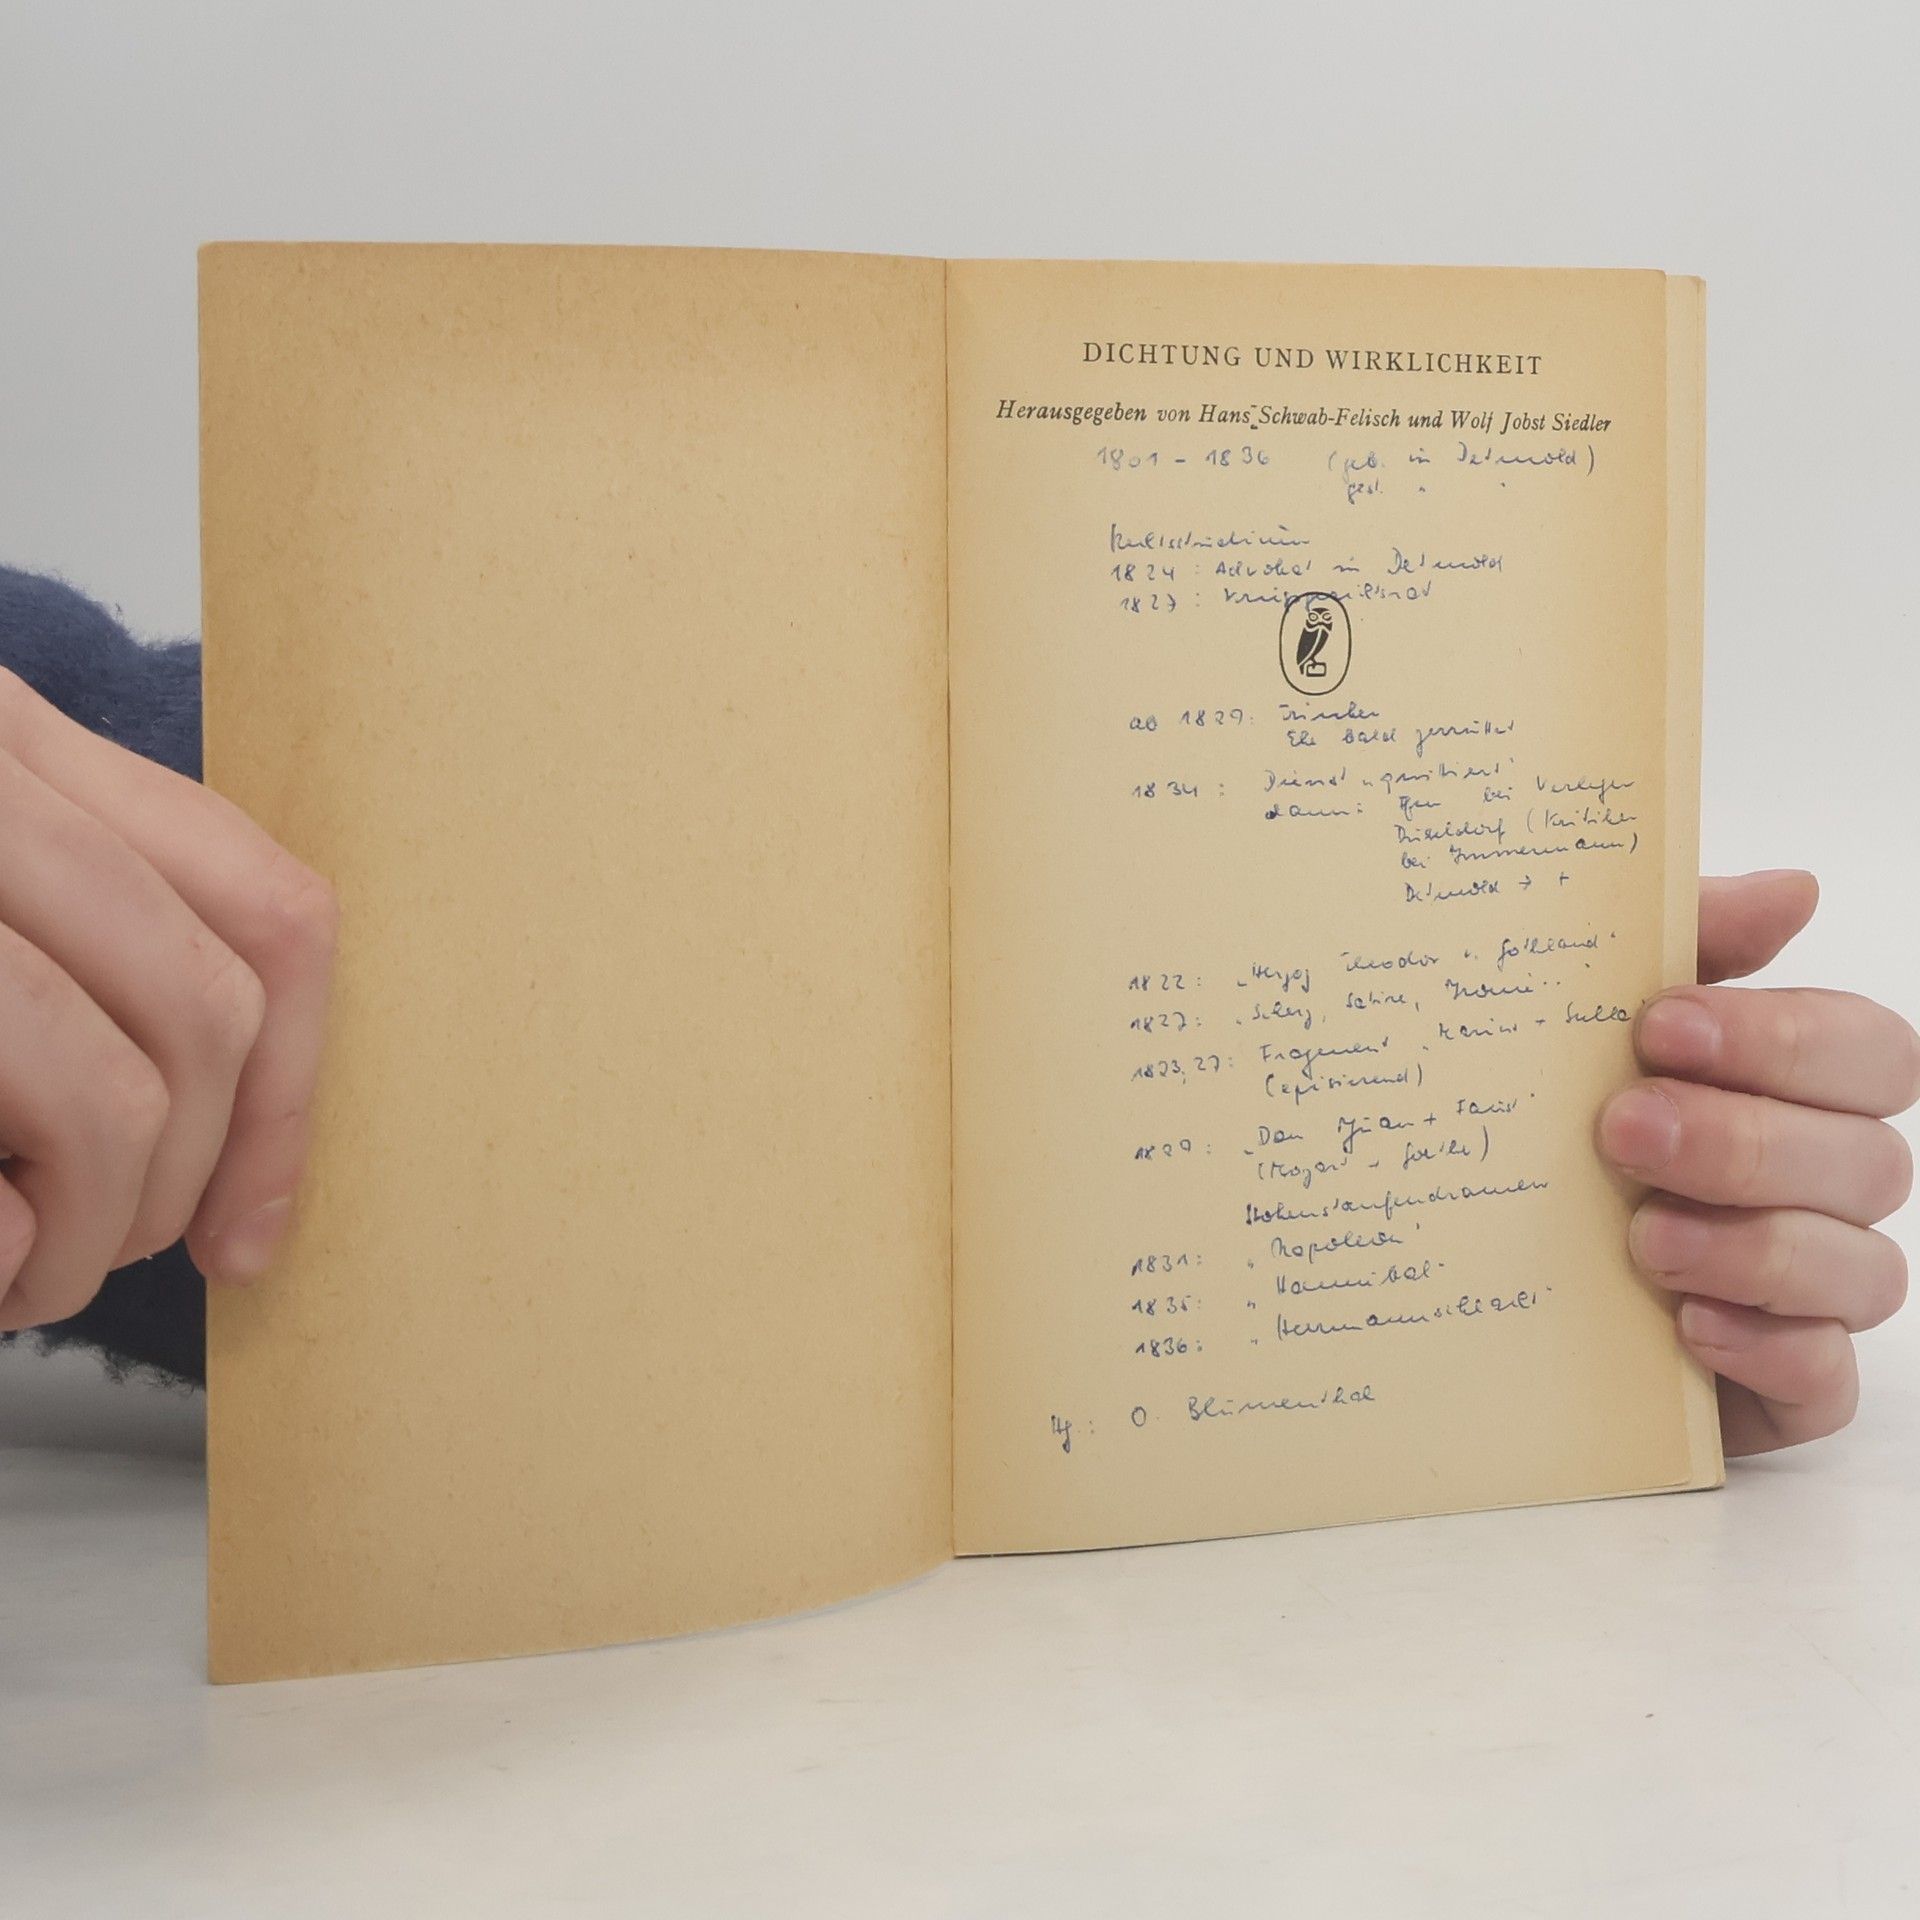 DICHTUNG UND WIRKLICHKEIT
Herausgegeben von Hans Schwab-Felisch und Wolf Jobst Siedler
1801 - 1836 (geb. in Detmold)
gest. " "
Rechtsstudium
1824 : Advokat in Detmold
1827 :
ab 1829: Trinker
Ehe bald zerrüttet
1834 : Dienst "quittiert"
dann: bei Verleger
Düsseldorf (Kritiker
bei Immermann)
Detmold → +
1822 : "Herzog Theodor v. Gothland"
1827: "Scherz, Satire, Ironie.."
1823, 27: Fragment "Marius + Sulla"
(episierend)
1829 : "Don Juan + Faust"
(Mozart + Goethe)
Hohenstaufendramen
1831: "Napoleon"
1835: "Hannibal"
1836: "Hermannschlacht"
Hg.: O. Blumenthal